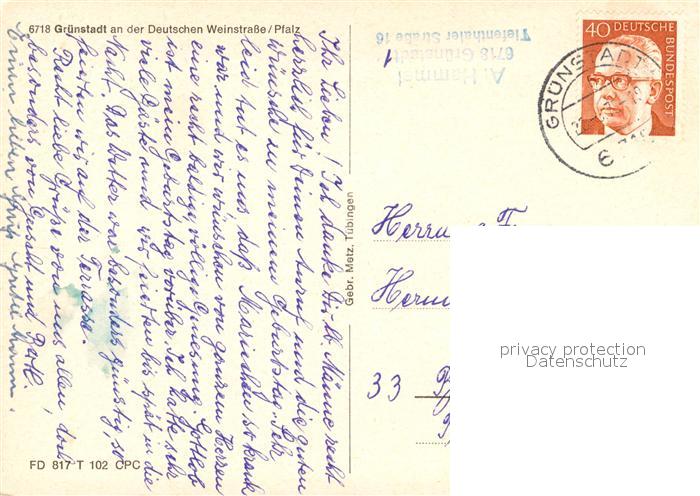 6718 Grünstadt an der Deutschen Weinstraße/Pfalz
Ihr Lieben! Ich danke Dir, lb. Männe recht
herzlich für Deinen Anruf und die guten
Wünsche zu meinem Geburtstag. Sehr
leid tat es uns daß Mariechen so krank
war und wir wünschen von ganzem Herzen
eine recht baldige völlige Genesung. Gottlob
ist mein Geburtstag vorüber. Ich hatte sehr
viele Gäste und wir feierten bis spät in die
Nacht. Das Wetter war besonders günstig, so
feierten wir auf der Terrasse.
Recht liebe Grüße von uns allen, doch
besonders von
und
FD 817 T 102 CPC
Gebr. Metz, Tübingen
A. Hammel
6718 Grünstadt 1
Tiefenthaler Straße 16
40 DEUTSCHE
BUNDESPOST
GRÜNSTADT
6718
Herrn u. F
Herm
33
privacy protection
Datenschutz